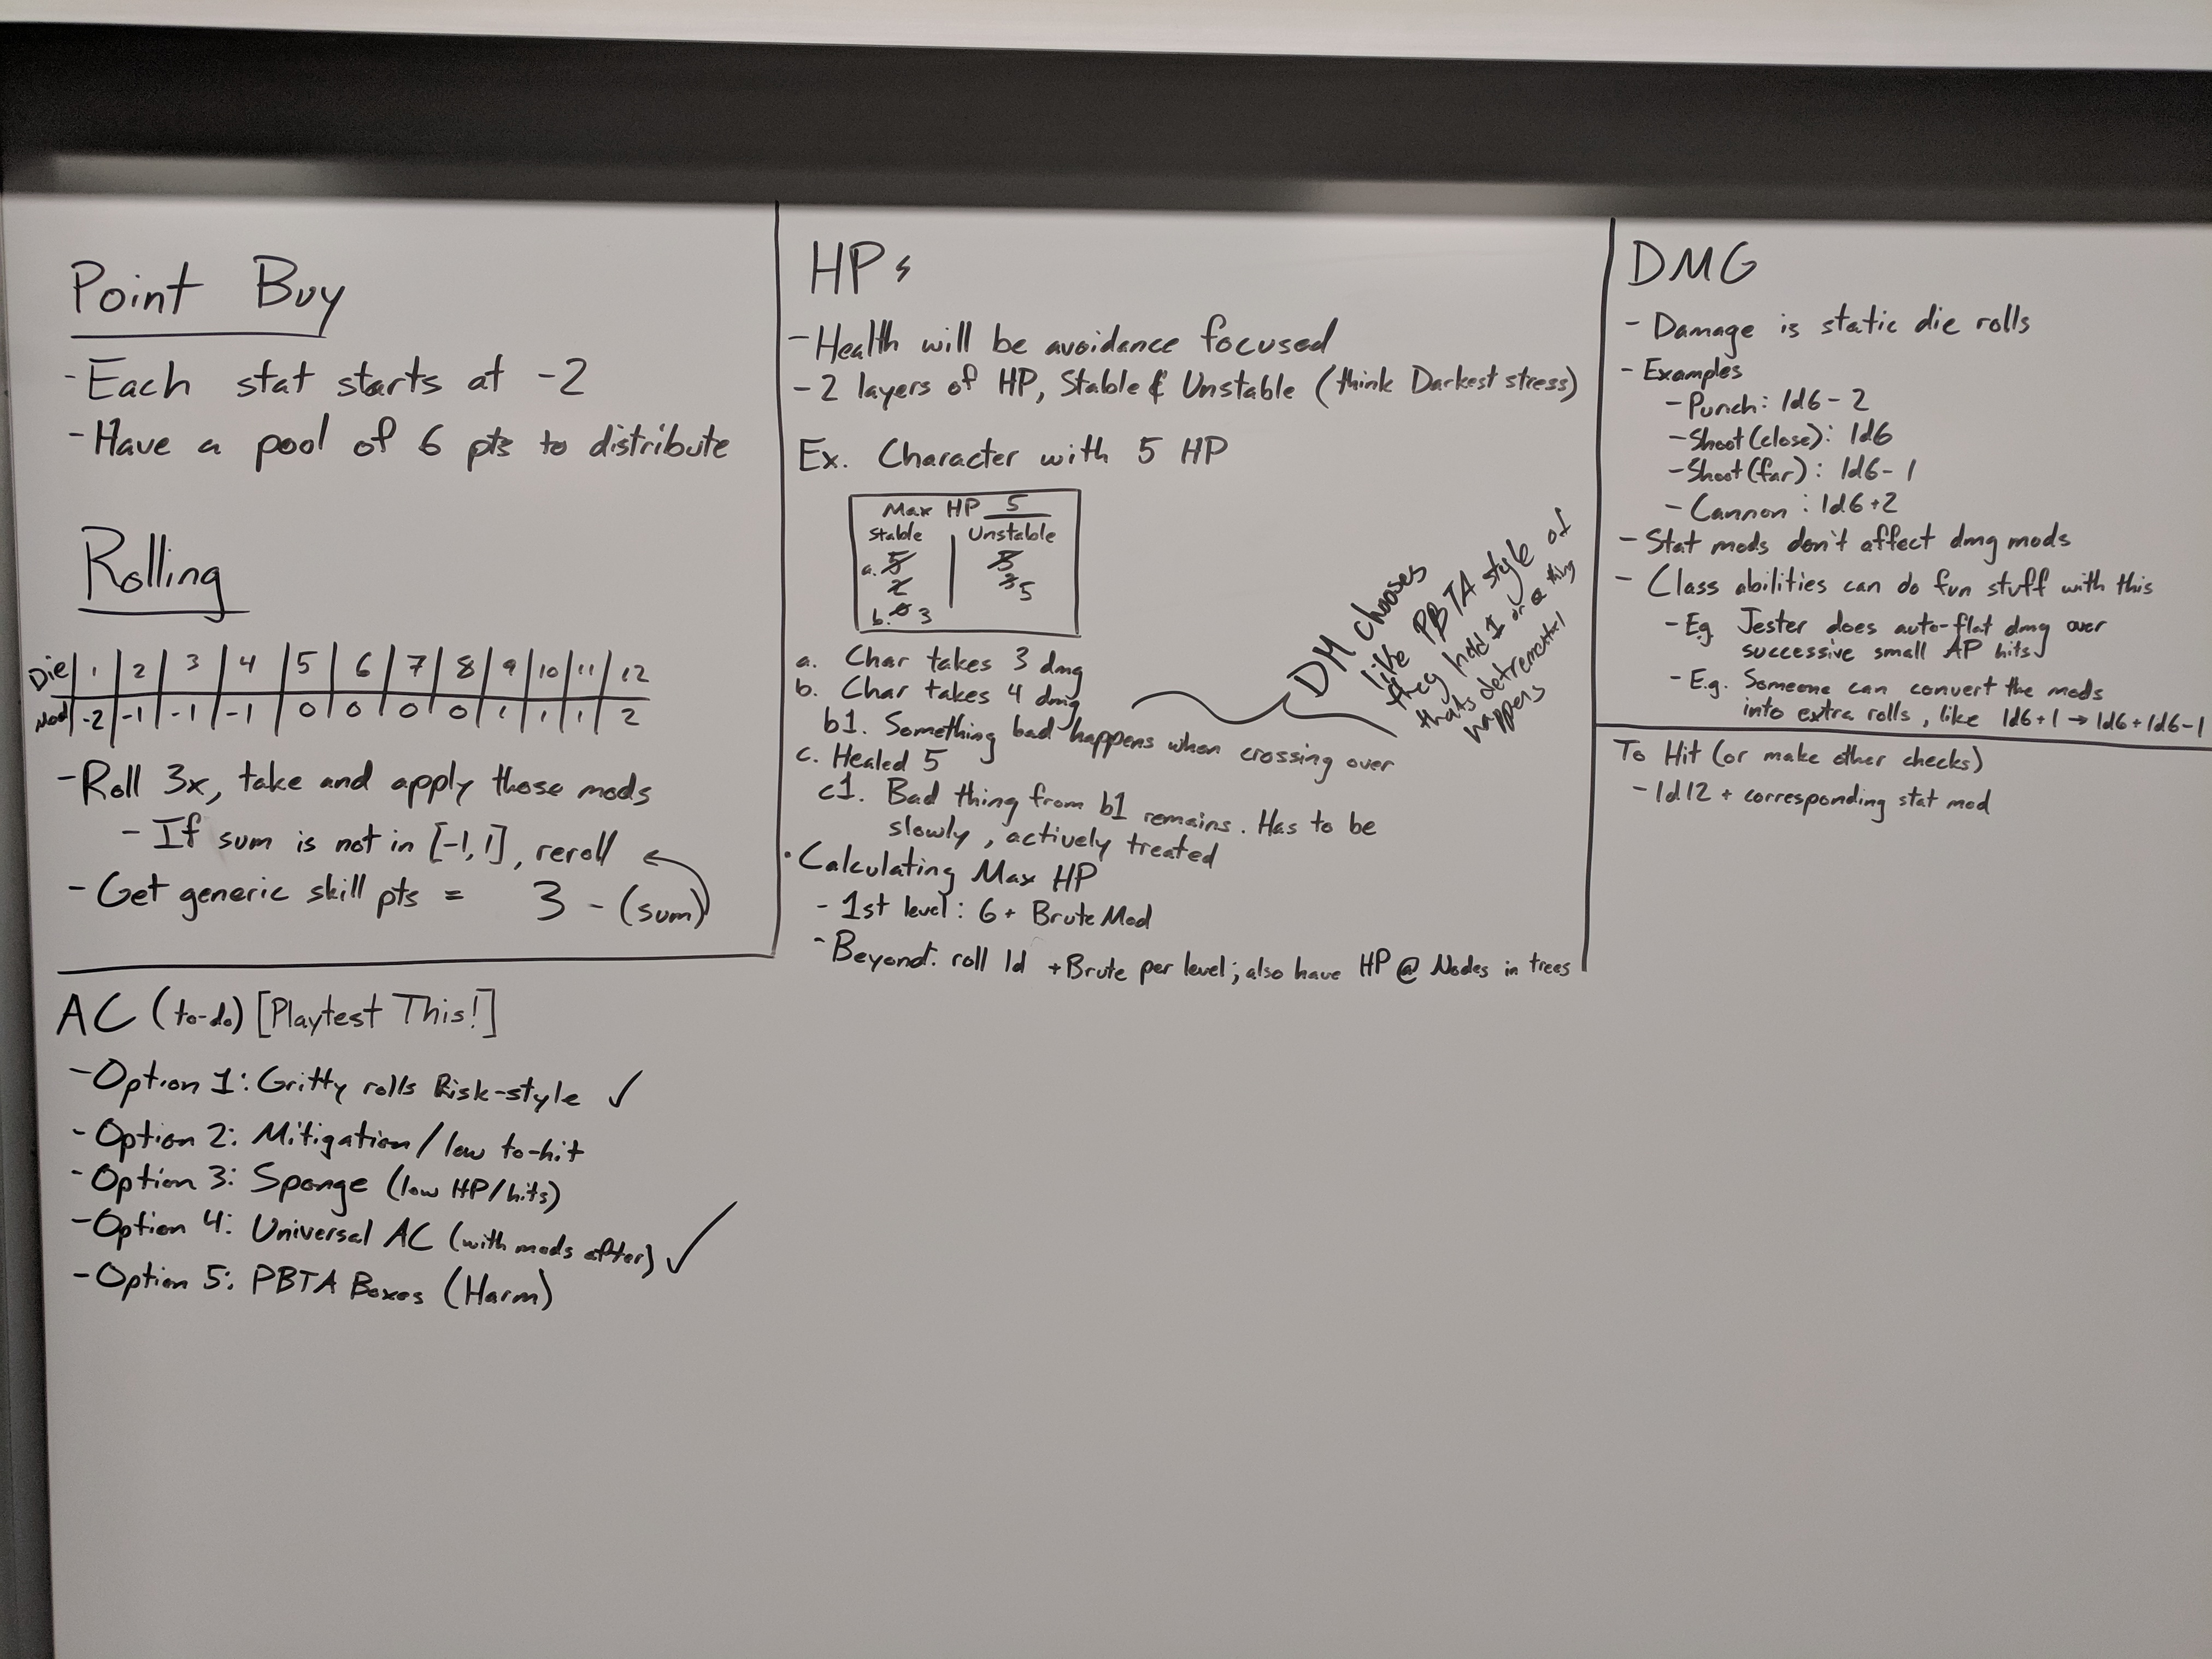 Point Buy
- Each stat starts at -2
- Have a pool of 6 pts to distribute
Rolling
Die | 1 | 2 | 3 | 4 | 5 | 6 | 7 | 8 | 9 | 10 | 11 | 12
Mod | -2 | -1 | -1 | -1 | 0 | 0 | 0 | 0 | 1 | 1 | 1 | 2
- Roll 3x, take and apply those mods
- If sum is not in [-1,1], reroll
- Get generic skill pts = 3 - (sum)
AC (to-do) [Playtest This!]
- Option 1: Gritty rolls Risk-style ✓
- Option 2: Mitigation/low to-hit
- Option 3: Sponge (low HP/hits)
- Option 4: Universal AC (with mods after) ✓
- Option 5: PBTA Boxes (Harm)
HPs
- Health will be avoidance focused
- 2 layers of HP, Stable & Unstable (think Darkest stress)
Ex. Character with 5 HP
Max HP 5
Stable | Unstable
a. 5 | 5
2 | 3 5
b. 0 3
a. Char takes 3 dmg
b. Char takes 4 dmg
b1. Something bad happens when crossing over
c. Healed 5
c1. Bad thing from b1 remains. Has to be
slowly, actively treated
DM chooses
like PBTA style of
they hold 1 or a thing
thats detremental
happens
• Calculating Max HP
- 1st level: 6 + Brute Mod
- Beyond: roll 1d +Brute per level; also have HP @ Nodes in trees
DMG
- Damage is static die rolls
- Examples
- Punch: 1d6 - 2
- Shoot (close): 1d6
- Shoot (far): 1d6 - 1
- Cannon: 1d6+2
- Stat mods don't affect dmg mods
- Class abilities can do fun stuff with this
- Eg Jester does auto-flat dmg over
successive small AP hits
- E.g. Someone can convert the mods
into extra rolls, like 1d6+1 → 1d6+1d6-1
To Hit (or make other checks)
- 1d12 + corresponding stat mod